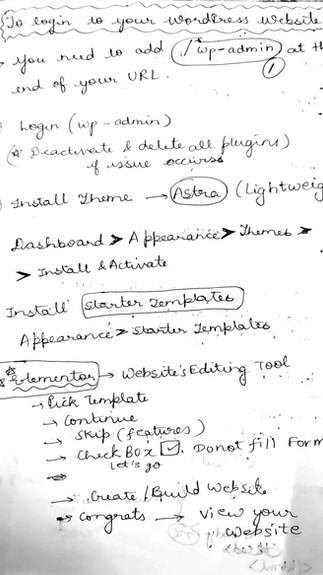 To login to your WordPress Website
You need to add /wp-admin at th
end of your URL.
1
Login (wp-admin)
(* Deactivate & delete all plugins)
if issue occurss
Install Theme → Astra (Lightweig
Dashboard > Appearance > Themes >
> Install & Activate
Install Starter Templates
Appearance > Starter Templates
Elementor → Website's Editing Tool
→ Pick Template
→ Continue
→ Skip (features)
→ Check Box ☑. Donot fill Form
Let's go
→
→ Create/Build Website
→ Congrats → View your
Website